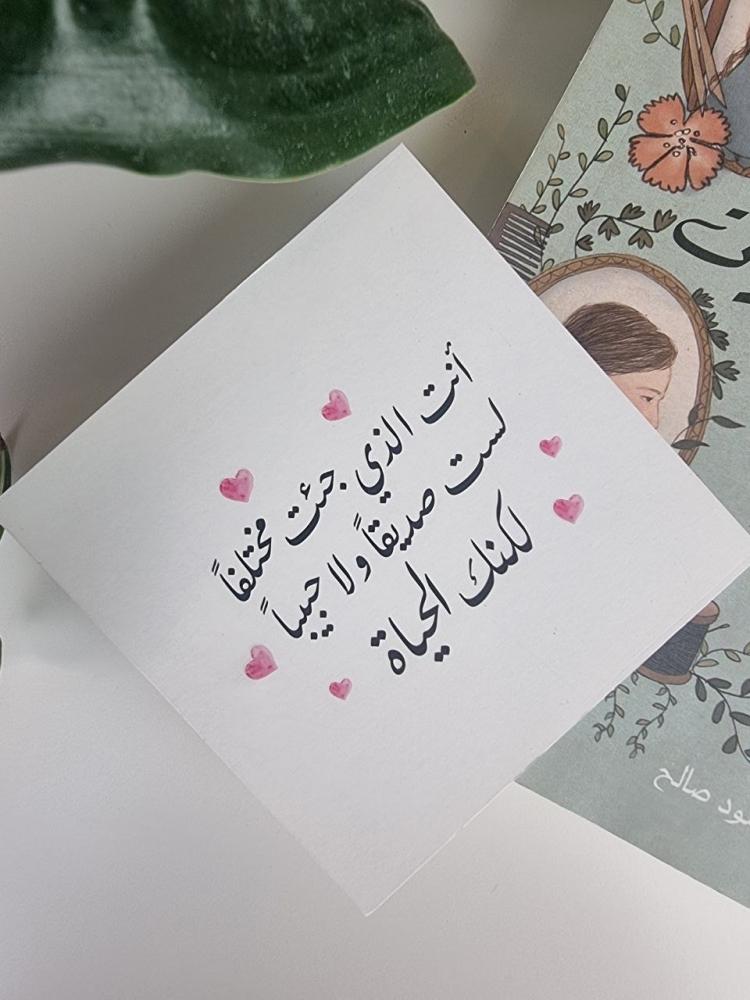 أنت الذي جئت مختلفاً
لست صديقاً ولا حبيباً
لكنك الحياة
صالح